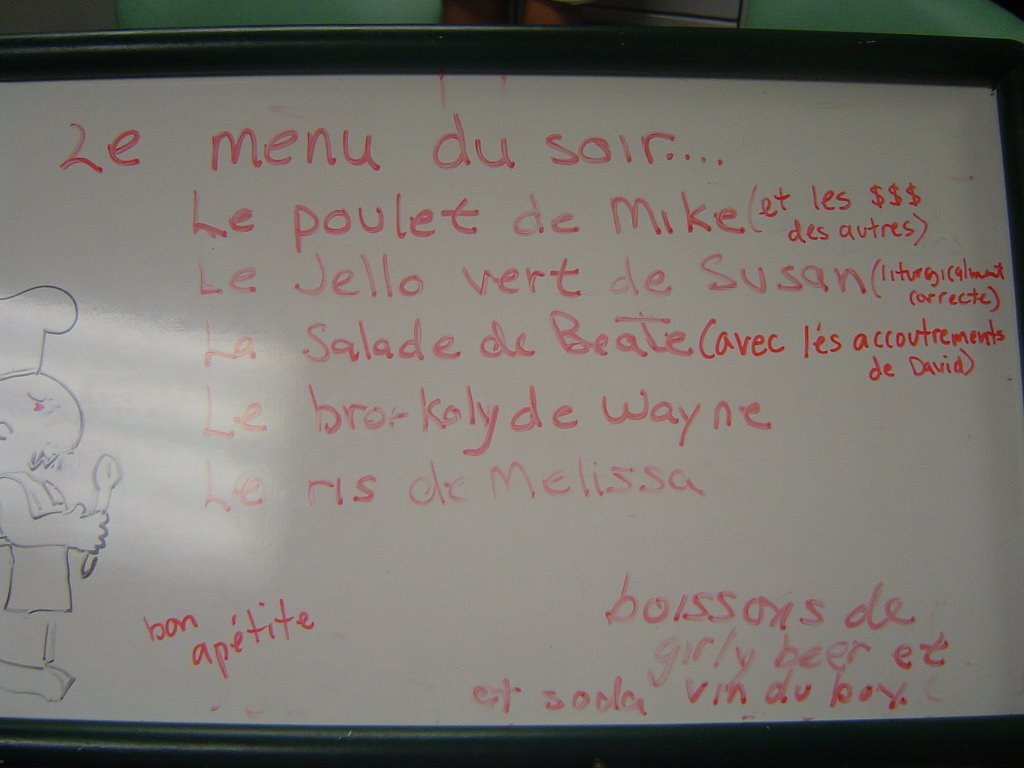 Le menu du soir....
Le poulet de Mike (et les $$$
des autres)
Le Jello vert de Susan (liturgicalment
correcte)
La Salade de Beate (avec lés accoutrements
de David)
Le bro-koly de Wayne
Le ris de Melissa
bon
apétite
boissons de
girly beer et
et soda vin du box